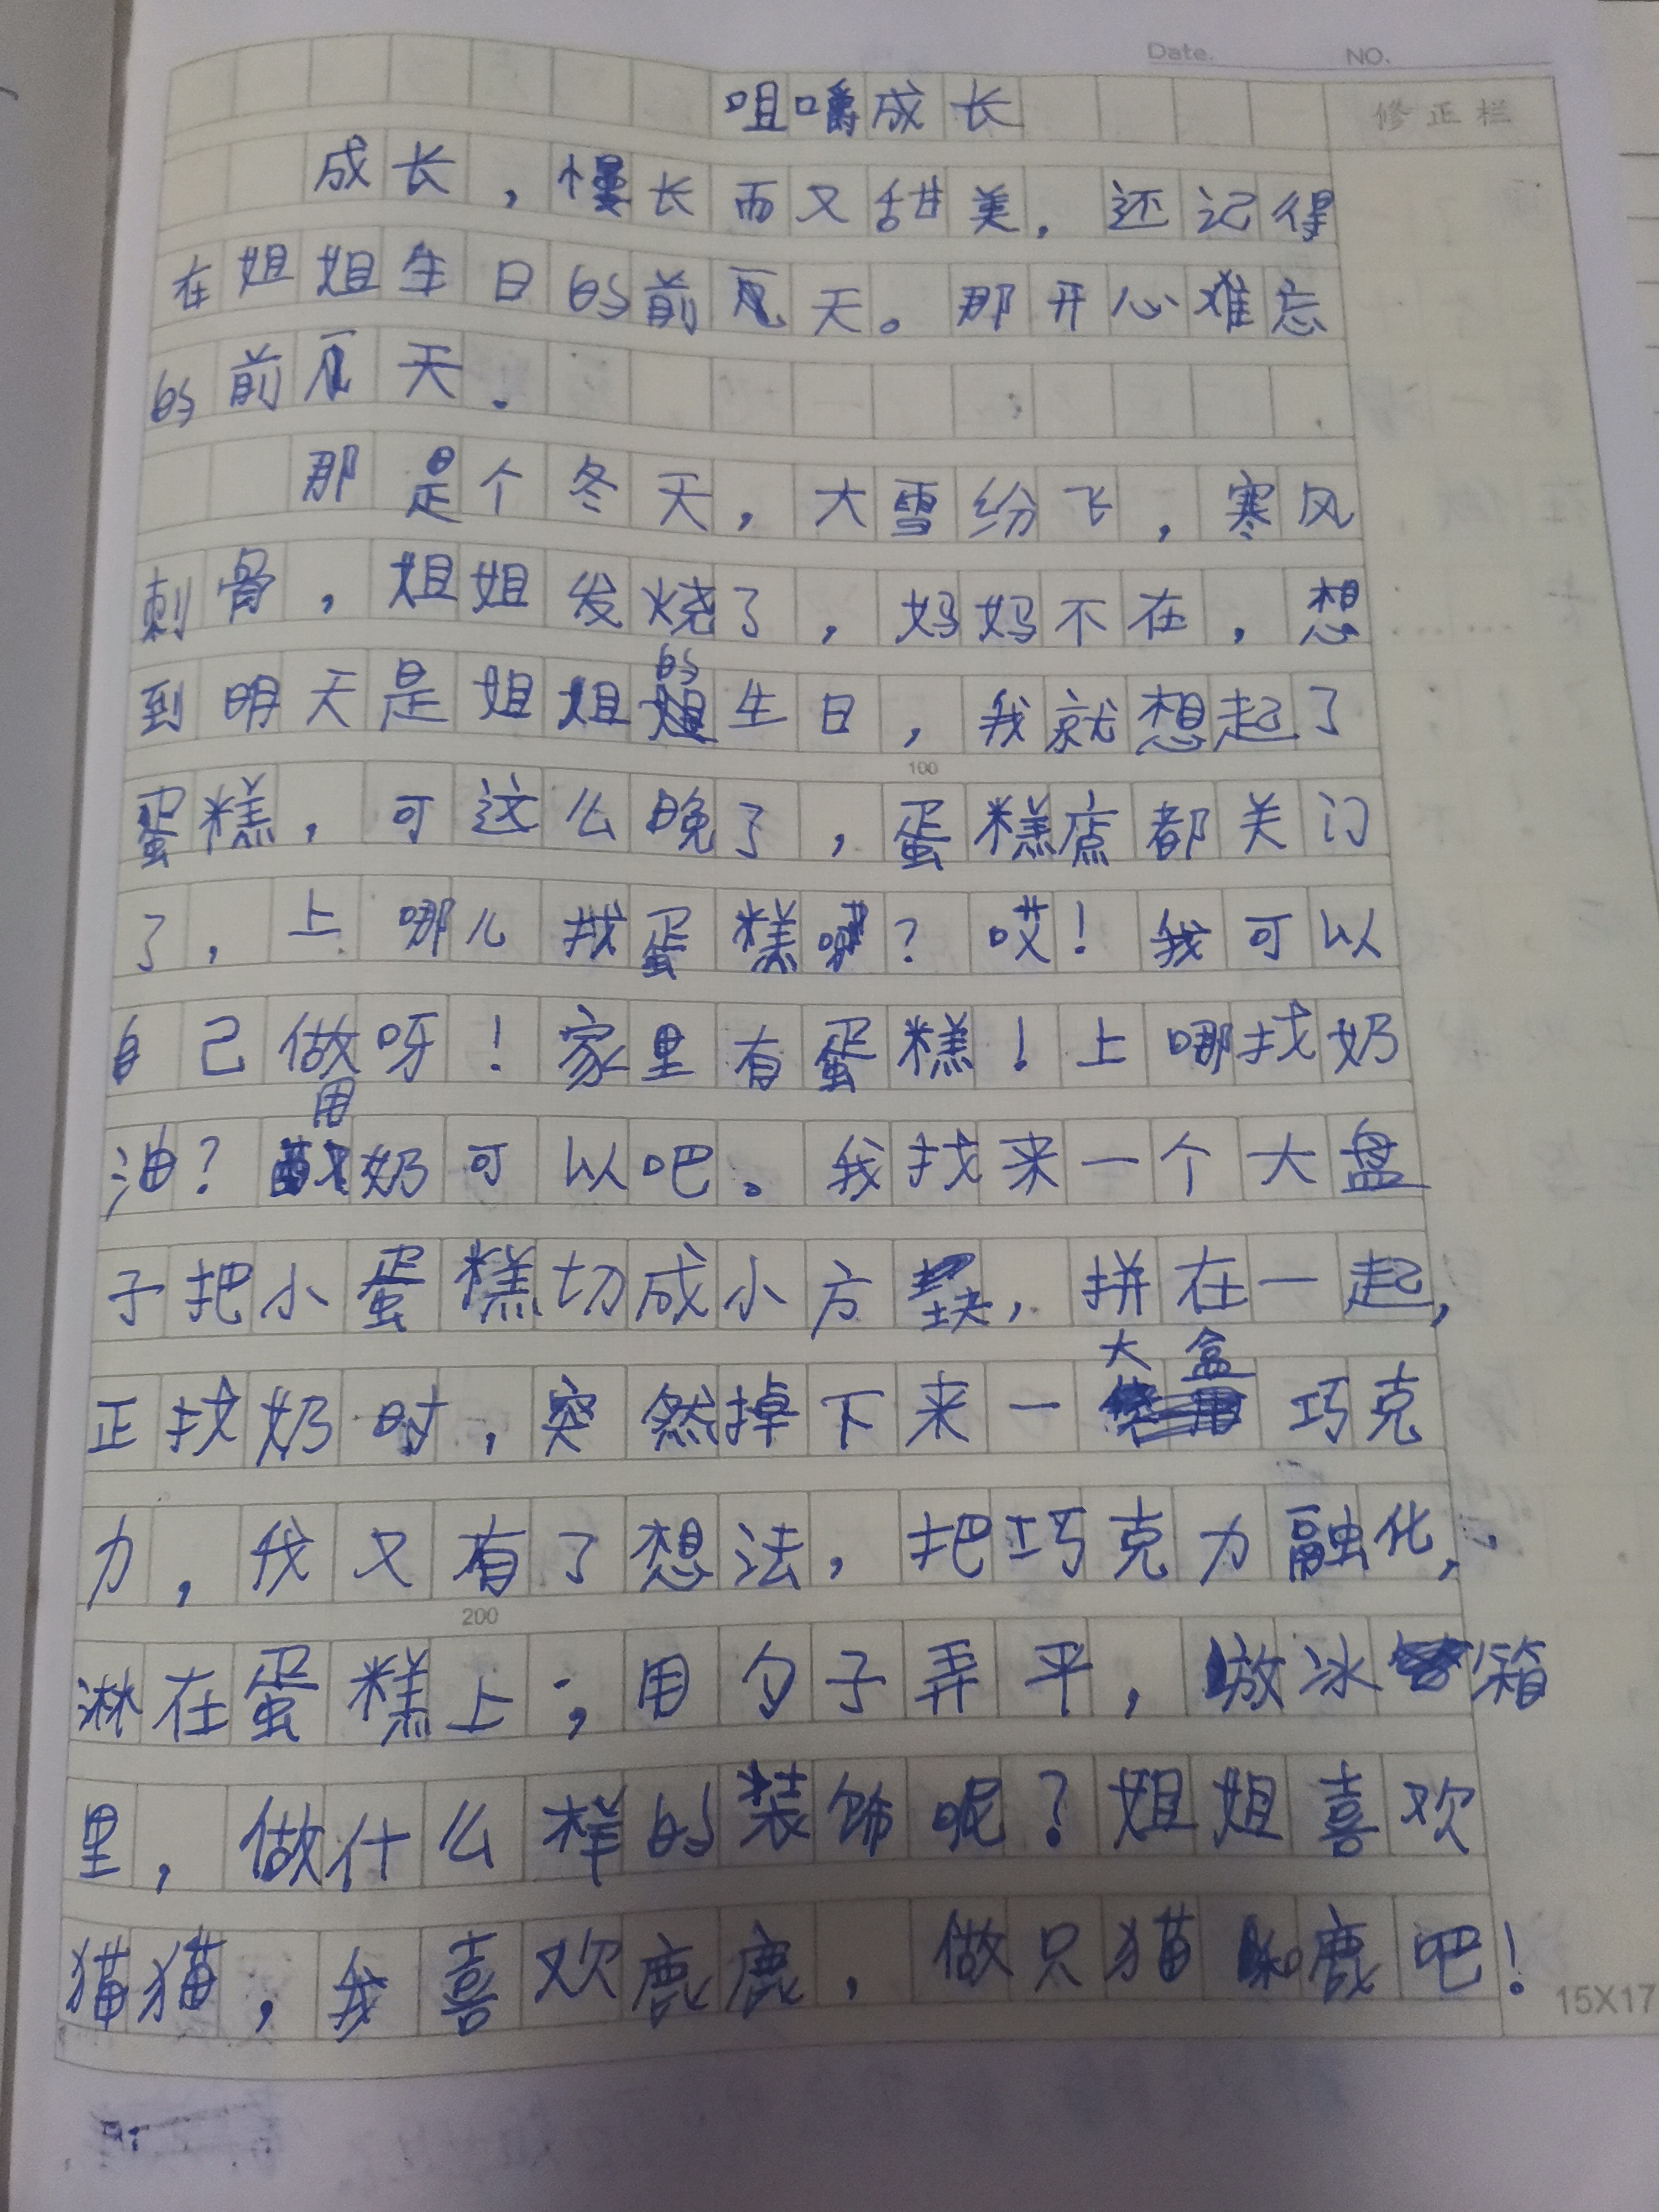 Date. NO.
咀嚼成长
修正栏
成长，慢长而又甜美，还记得
在姐姐生日的前几天。那开心难忘
的前几天.
那是个冬天，大雪纷飞，寒风
刺骨，姐姐发烧了，妈妈不在，想
到明天是姐姐的生日，我就想起了
100
蛋糕，可这么晚了，蛋糕店都关门
了，上哪儿找蛋糕呢？哎！我可以
自己做呀！家里有蛋糕！上哪找奶
油？用奶可以吧。我找来一个大盘
子把小蛋糕切成小方块，拼在一起，
正找奶时，突然掉下来一大盒巧克
力，我又有了想法，把巧克力融化，
200
淋在蛋糕上，用勺子弄平，放冰箱
里，做什么样的装饰呢？姐姐喜欢
猫猫，我喜欢鹿鹿，做只猫和鹿吧！
15X17